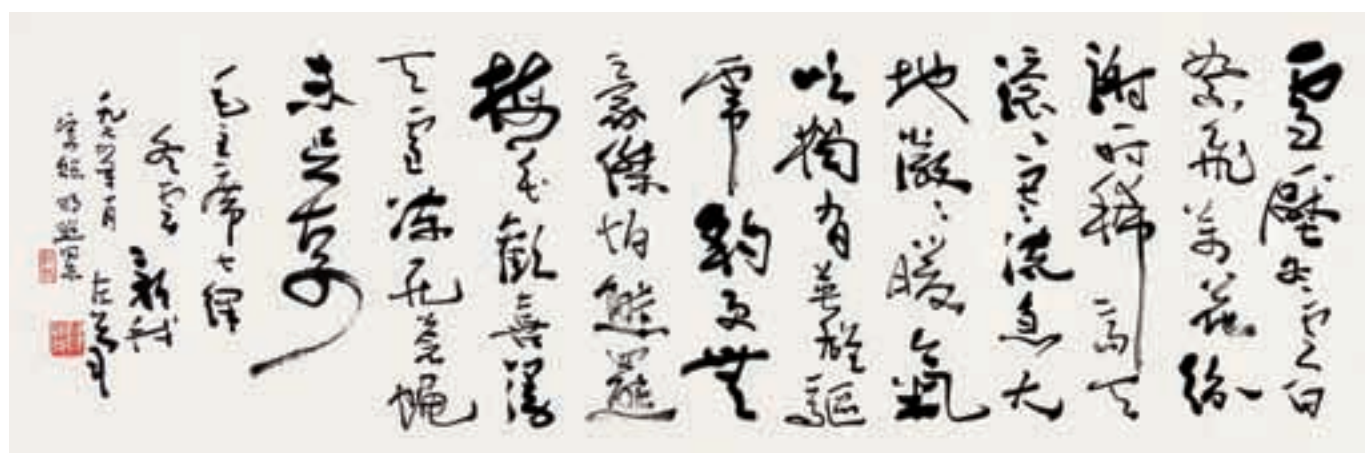 雪壓冬雲白
絮飛萬花紛
謝一时稀高天
滚滚寒流急大
地微微暖氣
吹獨有英雄驅
虎豹更無
豪傑怕熊羆
梅花歡喜漫
天雪冻死苍蝇
未足奇
毛主席七律
冬雲